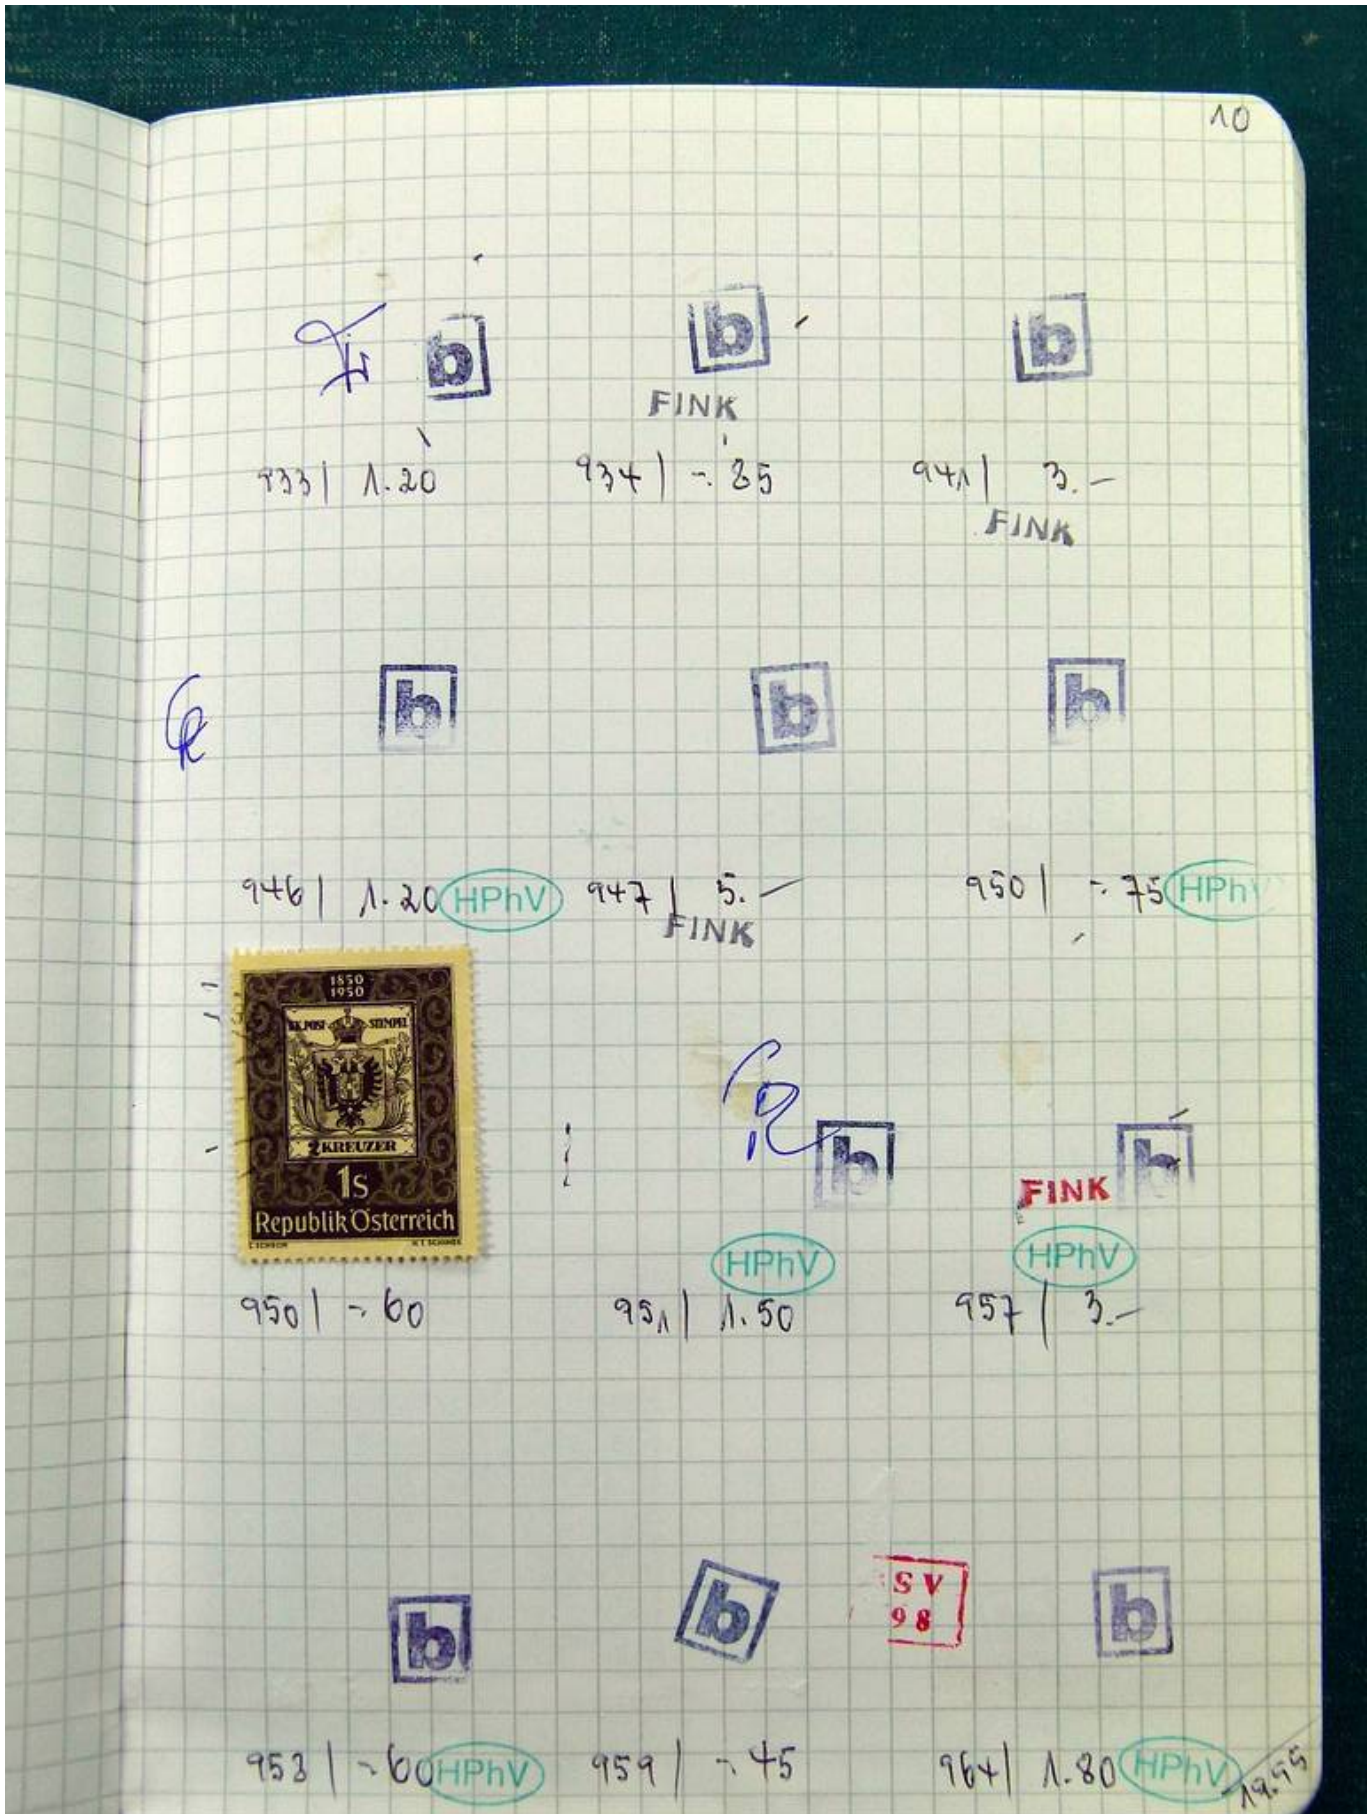 10
b b b
FINK
933 | 1.20 934 | -.85 941 | 3.-
FINK
b b b
946 | 1.20 HPhV 947 | 5.- 950 | -.75 HPhV
FINK
1850
1950
KK.POST STEMPEL
2 KREUZER
1S
Republik Österreich
b b
FINK
HPhV HPhV
950 | -.60 951 | 1.50 957 | 3.-
b b SV b
98
958 | -.60 HPhV 959 | -.45 964 | 1.80 HPhV
19.95